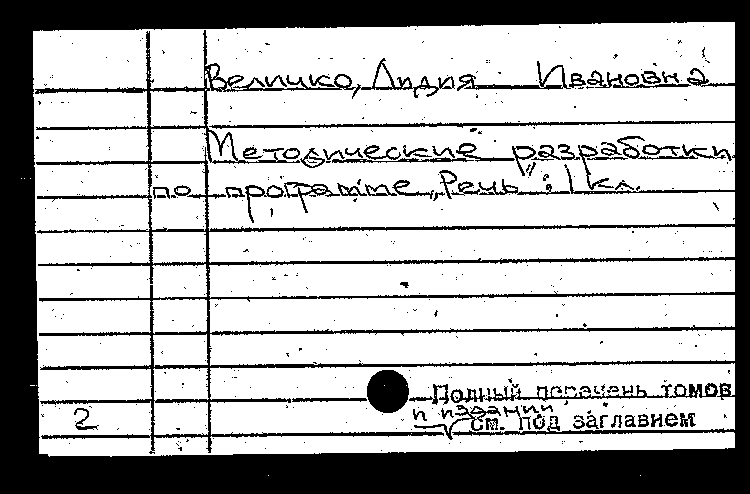 Величко, Лидия Ивановна
Методические разработки
по программе „Речь": 1 кл.
Полный перечень томов
и изданий
см. под заглавием
2